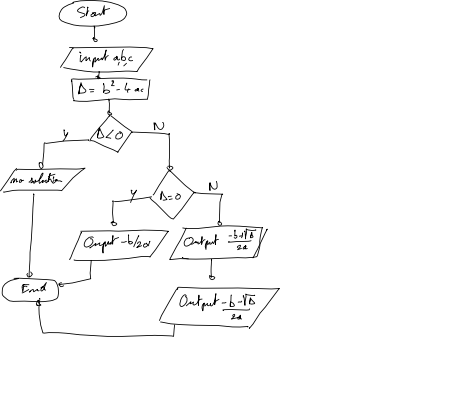 Start
input a,b,c
Δ = b² - 4 ac
Δ < 0
Y
N
no solution
Δ = 0
Y
N
Output -b/2a
Output -b+√Δ/2a
End
Output -b-√Δ/2a